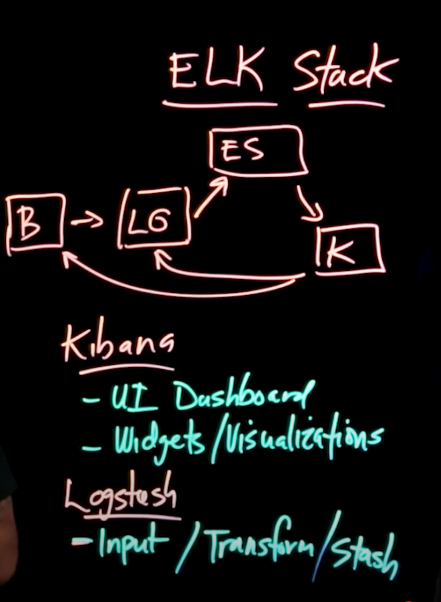 ELK Stack
ES
B
LG
K
Kibana
- UI Dashboard
- Widgets/Visualizations
Logstash
- Input / Transform / Stash